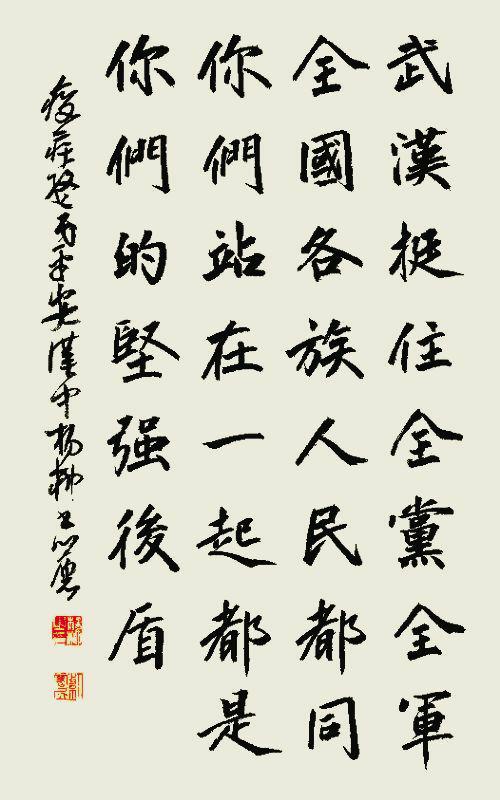 武漢挺住全黨全軍
全國各族人民都同
你們站在一起都是
你們的堅强後盾
平安漢中楊